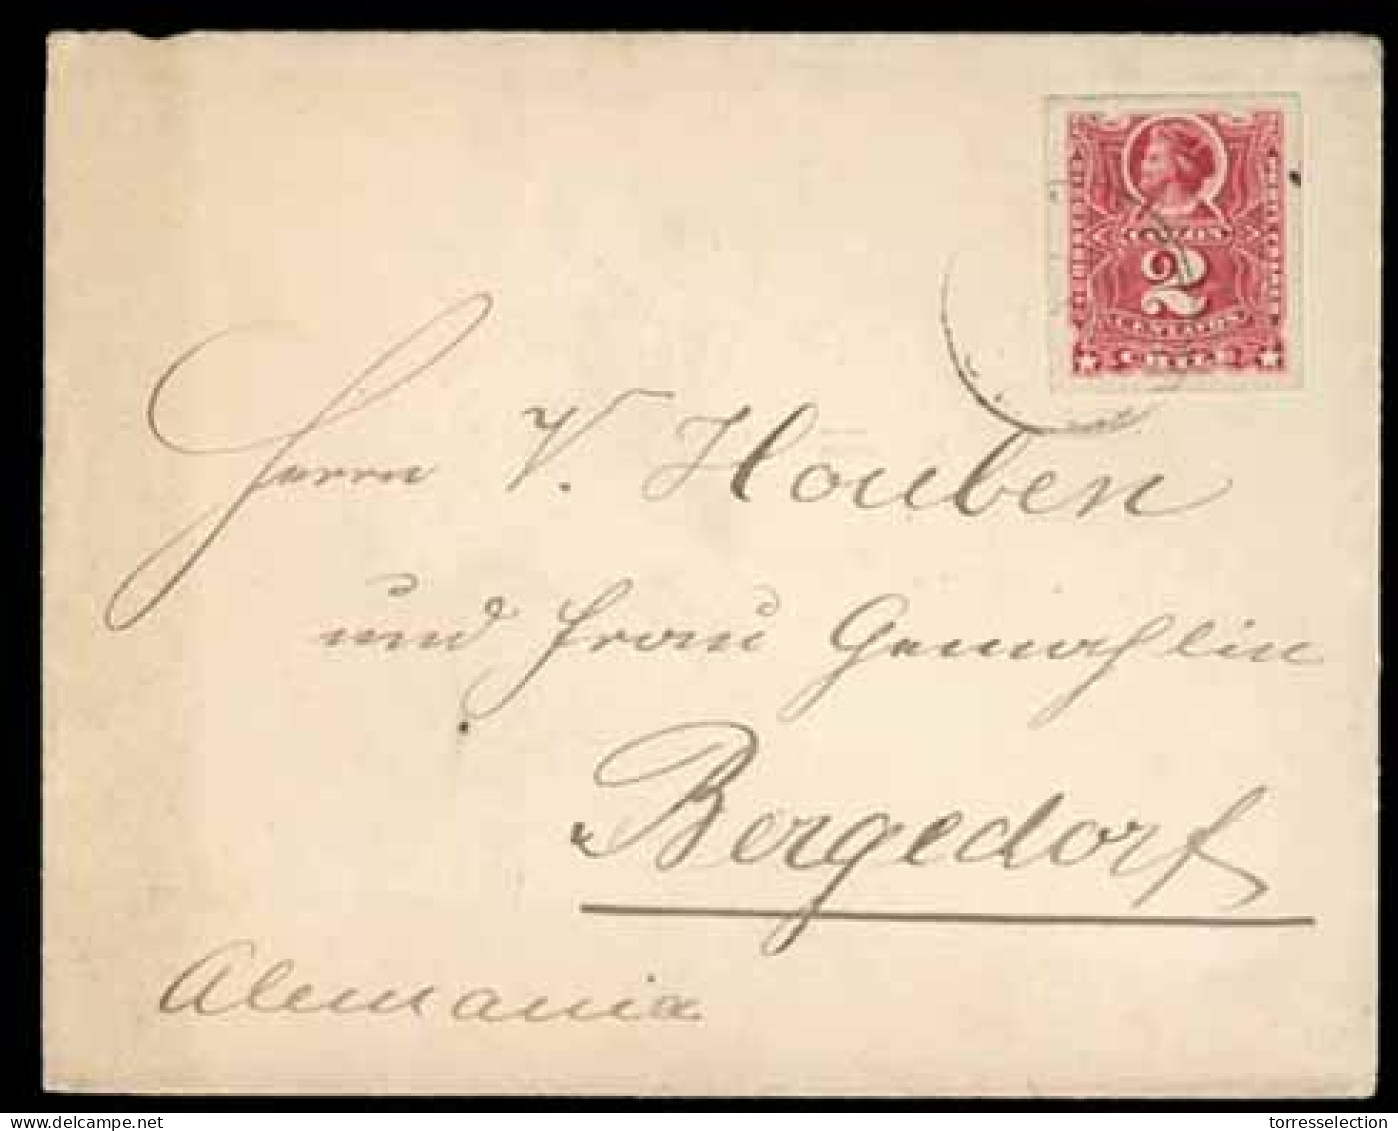 COLON
2
CENTAVOS
CHILE
Herrn V. Houben
und Frau Gemahlin
Bergedorf
Alemania
delcampe.net
torresselection